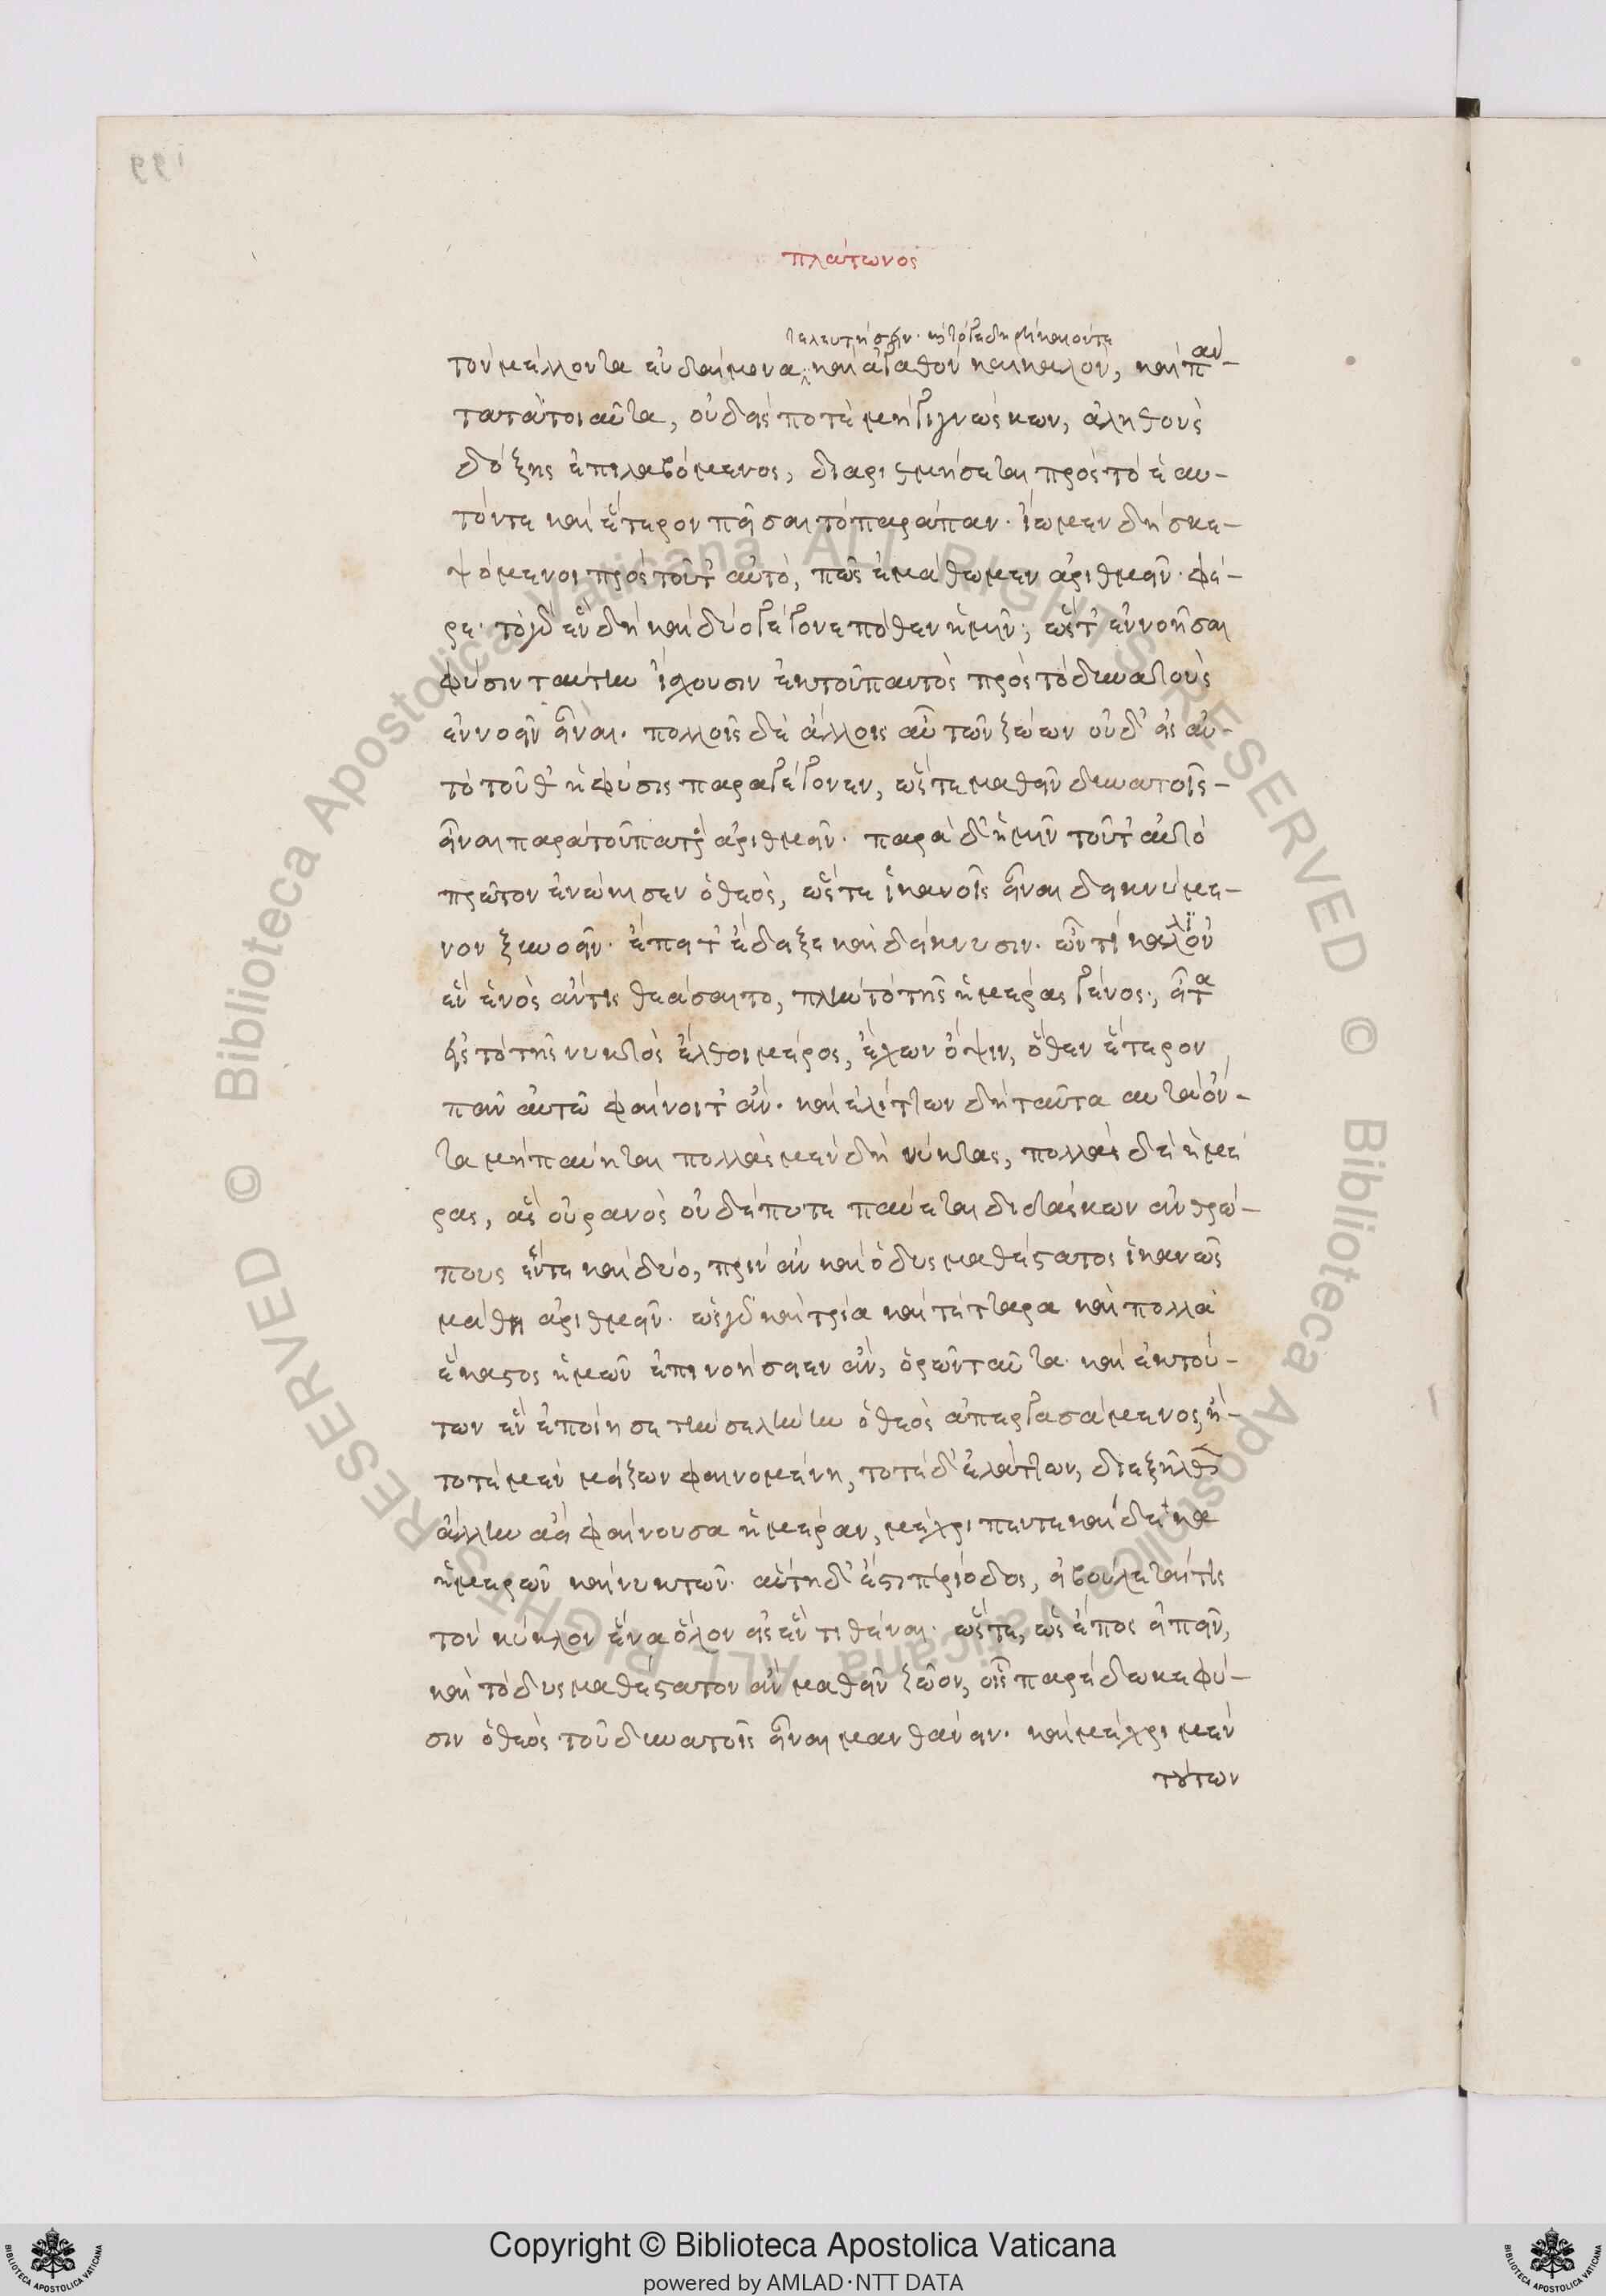 πλάτωνος
τελευτήσειν. καὶ τό γε δὴ δίκαιόν τε
τὸν μέλλοντα εὐδαίμονα καὶ ἀγαθὸν καὶ καλὸν, καὶ παν-
τα τὰ τοιαῦτα, οὐδεὶς ποτὲ μὴ γιγνώσκων, ἀληθοῦς
δόξης ἐπιλαβόμενος, διαριθμήσεται πρὸς τὸ ἑαυ-
τόν τε καὶ ἕτερον πεῖσαι τὸ παράπαν. ἴωμεν δὴ σκε-
ψόμενοι πρὸς τοῦτ' αὐτὸ, πῶς ἐμάθωμεν ἀριθμεῖν. φέ-
ρε. τὸ γὰρ ἓν δὴ καὶ δύο γέγονε πόθεν ἡμῖν; ὥστ' ἐννοῆσαι
φύσιν ταύτην ἔχουσιν ἐκ τοῦ παντὸς πρὸς τὸ δυνατοὺς
ἐννοεῖν εἶναι. πολλοῖς δὲ ἄλλοις αὖ τῶν ζώων οὐδ' εἰς αὐ-
τὸ τοῦθ' ἡ φύσις παραγέγονεν, ὥστε μαθεῖν δυνατοῖς-
εἶναι παρὰ τοῦ πατρὸς ἀριθμεῖν. παρὰ δ' ἡμῖν τοῦτ' αὐτὸ
πρῶτον ἐνῴκισεν ὁ θεὸς, ὥστε ἱκανοῖς εἶναι δεικνύμε-
νον ξυννοεῖν. ἔπειτ' ἔδειξε καὶ δείκνυσιν. ὧν τί κάλλιον
ἓν ἑνὸς ἄν τις θεάσαιτο, πλὴν τὸ τῆς ἡμέρας γένος, εἶτα
εἰς τὸ τῆς νυκτὸς ἔλθοι μέρος, ἔχων ὄψιν, ὅθεν ἕτερον
πᾶν αὐτῷ φαίνοιτ' ἄν. καὶ ἑλίττων δὴ ταῦτα αὐτὰ ὄν-
τα μὴ παύηται πολλὰς μὲν δὴ νύκτας, πολλὰς δὲ ἡμέ
ρας, ἃς οὐρανὸς οὐδέποτε παύεται διδάσκων ἀνθρώ-
πους ἕν τε καὶ δύο, πρὶν ἂν καὶ ὁ δυσμαθέστατος ἱκανῶς
μάθῃ ἀριθμεῖν. ὡς γὰρ καὶ τρία καὶ τέτταρα καὶ πολλὰ
ἕκαστος ἡμῶν ἐπινοήσειεν ἂν, ὁρῶν ταῦτα. καὶ ἐκ τού-
των ἓν ἐποίησε τὴν σελήνην ὁ θεὸς ἀπεργασάμενος, ἣ-
τοτὲ μὲν μείζων φαινομένη, τοτὲ δ' ἐλάττων, διεξῆλθεν
ἄλλην ἀεὶ φαίνουσα ἡμέραν, μέχρι πεντεκαίδεκα
ἡμερῶν καὶ νυκτῶν. αὕτη δ' ἔστι περίοδος, εἰ βούλεταί τις
τὸν κύκλον ἕνα ὅλον εἰς ἓν τιθέναι. ὥστε, ὡς ἔπος εἰπεῖν,
καὶ τὸ δυσμαθέστατον ἂν μαθεῖν ζῶον, οἷς παρέδωκε φύ-
σιν ὁ θεὸς τοῦ δυνατοῖς εἶναι μανθάνειν. καὶ μέχρι μὲν
τούτων
199
© Biblioteca Apostolica Vaticana ALL RIGHTS RESERVED
© Biblioteca Apostolica Vaticana ALL RIGHTS RESERVED
Copyright © Biblioteca Apostolica Vaticana
powered by AMLAD·NTT DATA
BIBLIOTECA APOSTOLICA VATICANA
BIBLIOTECA APOSTOLICA VATICANA